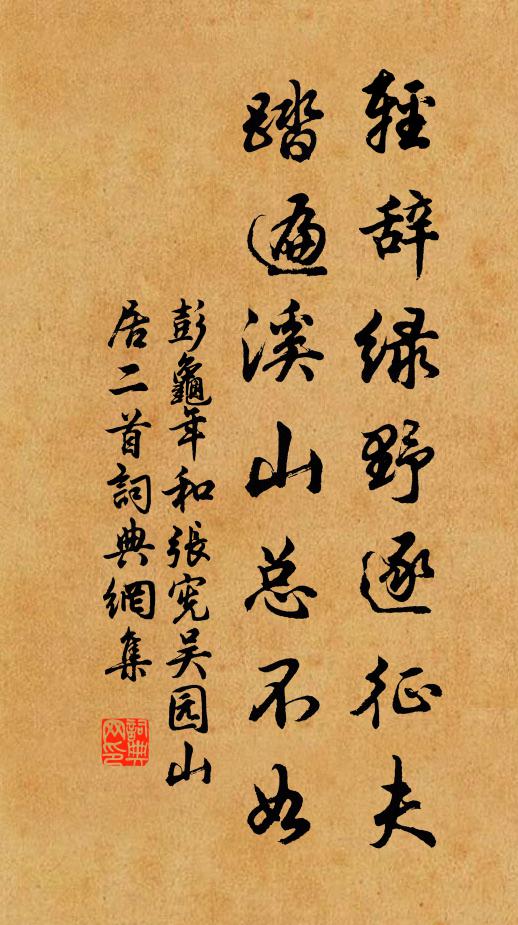 輕辞绿野逐征夫
踏遍溪山总不如
彭龜年和張宪吴园山
居二首詞典網集
詞典網印